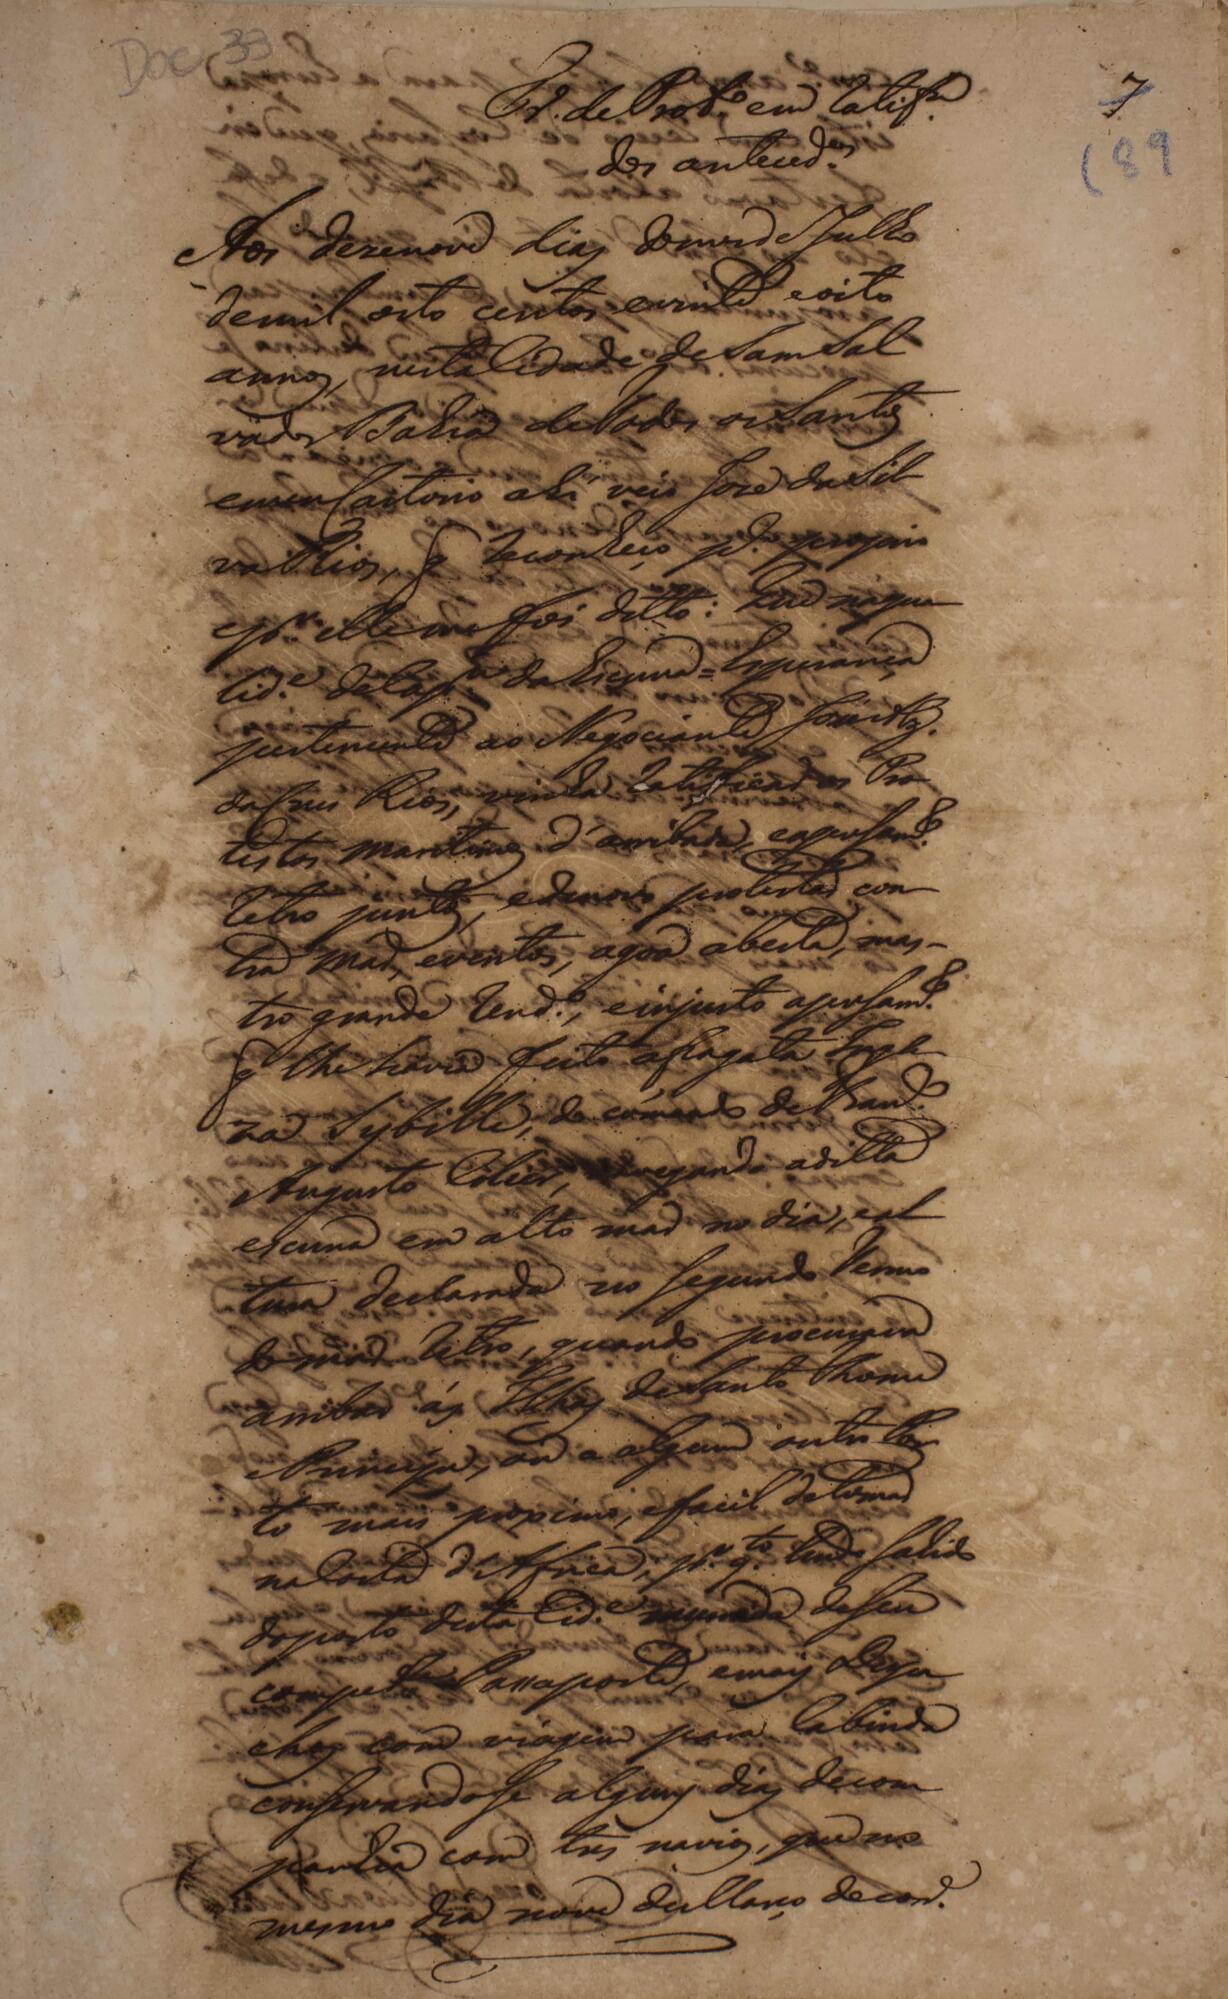 Doc 33
7
189
Tr. de Prot.º em ratif.am
dos anteced.es
Aos dezenove dias do mes de Julho
de mil oito centos e vinte e oito
annos, nesta Cidade de Sam Sal
vador Bahia de Todos os Santos
em meu Cartorio ahi veio José da Sil
va Rios, q reconheço p.r proprio
e p.r elle me foi ditto: Que na qua
lid.e de Cap.am da Escuna = Esperança
pertencente ao Negociante José Alz.
da Cruz Rios, vinha ratificar os Pro
testos maritimos d'arribada, e apresam.to
retro juntos, e de novo protestar con
tra mar, e ventos, agoa aberta, mas-
tro grande rend.º, e injusto apresam.to
q lhe havia feito a fragata Ingle
za Sybille, de cómando de Fran.co
Augusto Colier, navegando a ditta
escuna em alto mar no dia, e al
tura declarada no segundo Termo
do mar retro, quando procurava
arribar ás Ilhas de Santo Thomé
e Principe, ou a algum outro Por
to mais proximo, e facil de tomar
na Costa d'Africa, p.r q.to tendo sahido
do porto desta Cid.e munida de seu
compet.e Passaporte, e mais Despa
chos com viagem para Cabinda
conservandose alguns dias de com
panhia com tres navios, que no
mesmo dia nove de Março de corr.e